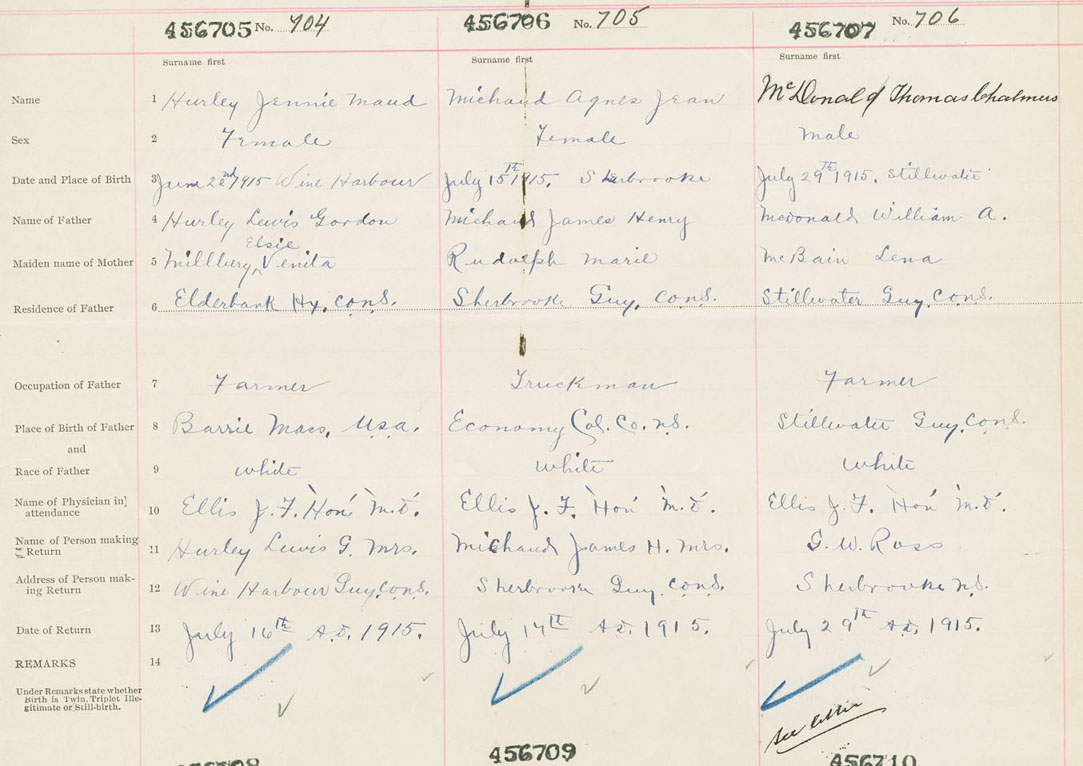 456705 No. 704 456706 No. 705 456707 No. 706
Surname first Surname first Surname first
Name 1 Hurley Jennie Maud Michaud Agnes Jean McDonald Thomas Chalmers
Sex 2 Female Female Male
Date and Place of Birth 3 June 22nd 1915 Wine Harbour July 15th 1915. Sherbrooke July 29th 1915. Stillwater
Name of Father 4 Hurley Lewis Gordon Michaud James Henry McDonald William A.
Elsie
Maiden name of Mother 5 Millbery, Venita Rudolph Marie McBain Lena
Residence of Father 6 Elderbank Hx. Co. N.S. Sherbrooke Guy. Co. N.S. Stillwater Guy. Co. N.S.
Occupation of Father 7 Farmer Truckman Farmer
Place of Birth of Father 8 Barrie Macs, U.S.A. Economy Col. Co. N.S. Stillwater Guy. Co. N.S.
and
Race of Father 9 White White White
Name of Physician in} attendance 10 Ellis J. F. "Hon" "M.D." Ellis J. F. "Hon" "M.D." Ellis J. F. "Hon" "M.D."
Name of Person making Return 11 Hurley Lewis G. Mrs. Michaud James H. Mrs. G. W. Ross
Address of Person mak-
ing Return 12 Wine Harbour Guy. Co. N.S. Sherbrooke Guy. Co. N.S. Sherbrooke N.S.
Date of Return 13 July 16th A.D. 1915. July 17th A.D. 1915. July 29th A.D. 1915.
REMARKS 14
Under Remarks state whether
Birth is Twin, Triplet Ille-
gitimate or Still-birth.
See
456709 456710